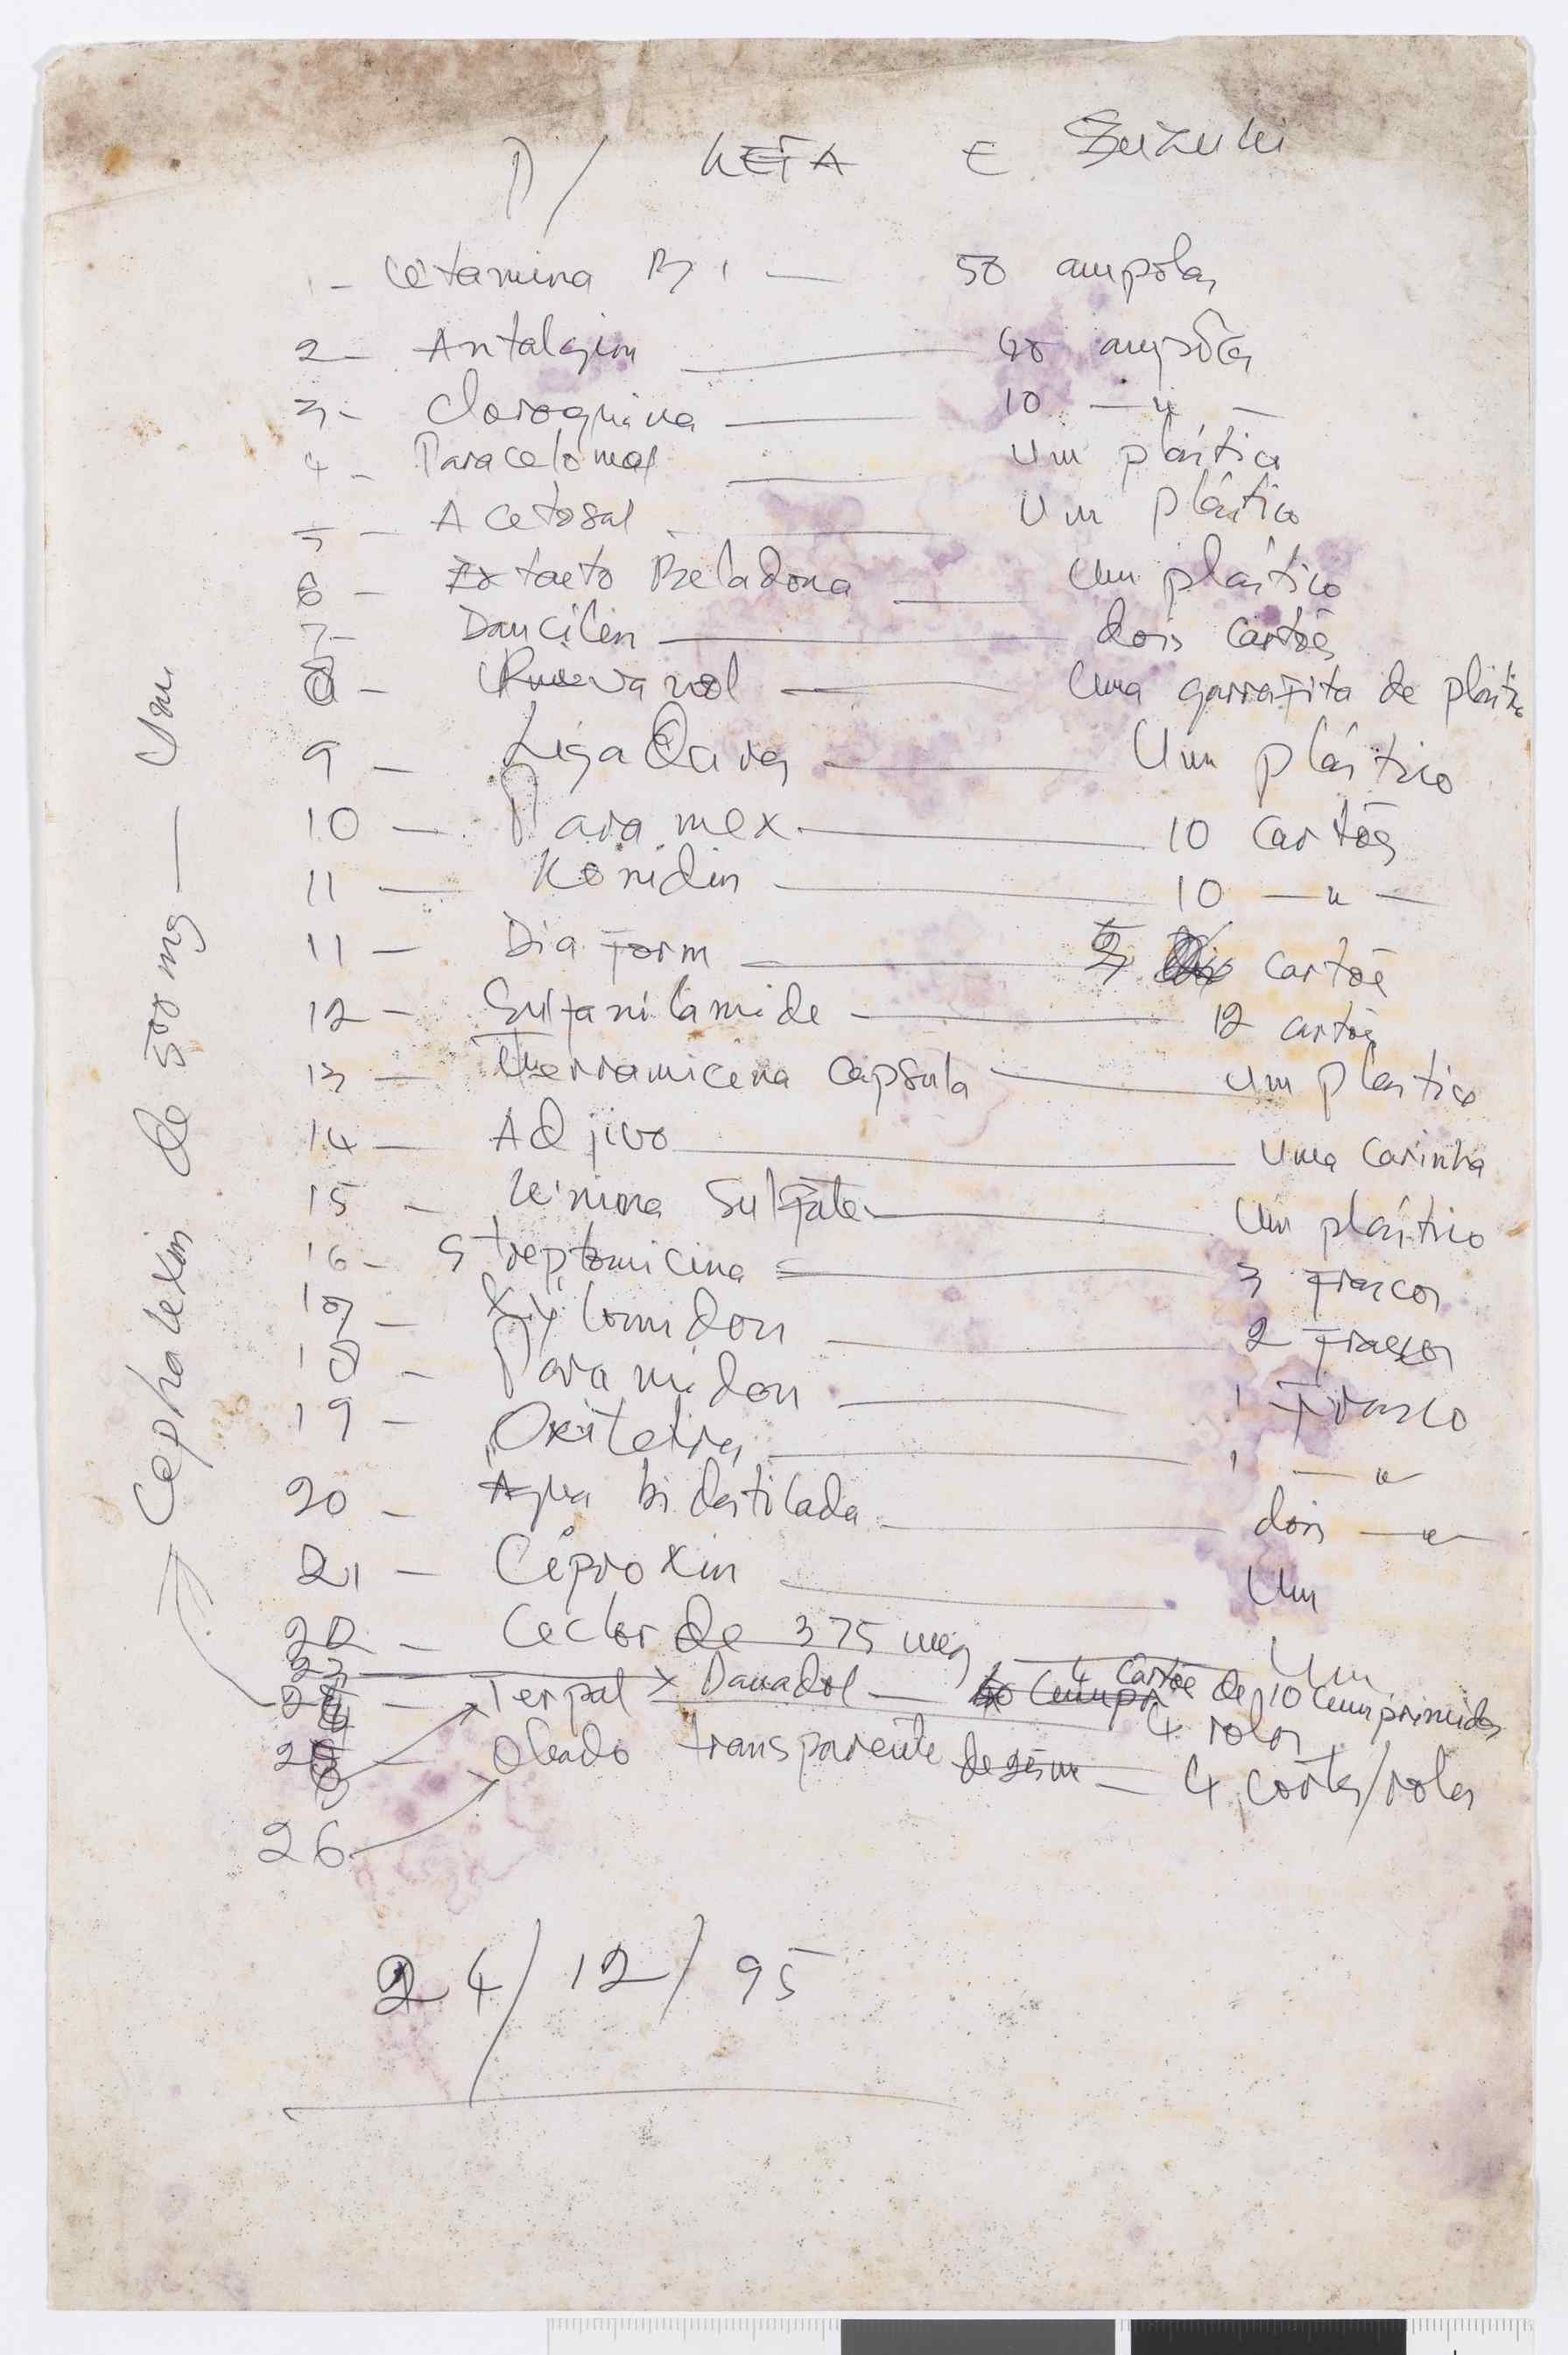 P/ KEFA E Suzuki
1- Cetamina B1 — 50 ampolas
2- Antalgin — 40 ampõles
3- Cloroquina — 10 — " —
4- Paracetomol — Um plástico
5- Acetosal — Um plástico
6- Extaeto Beladona — Um plástico
7- Daucilin — dois Cartões
8- vanol — Uma garrafita de plástico
9 - Ligaduras — Um plástico
10 - Paramex — 10 Cartões
11 - Konidin — 10 — " —
11 - Dia Form — Cartõe
12 - Sulfanilamide — 12 cartõe
13 - Terramicina Capsula — Um plastico
14 - Adjivo — Uma Carinha
15 - Kinina Sulfate — Um plástico
16 - Streptomicina — 3 Frascos
17 - Xylomidon — 2 Frascos
18 - Paramidon — 1 Frasco
19 - Oxitetra — 1 — "
20 - Agua bidestilada — dois — " —
21 - Ciproxin — Um
22 - Ceclor de 375 meg — Um
23
24 - Terpal x Danadol — 4 Cartõe de 10 Cumprimidos
4 rolos
25 - Oleado transparente — 4 cortes/rolos
26
Cephalexin de 500 mg — Um
24/12/95